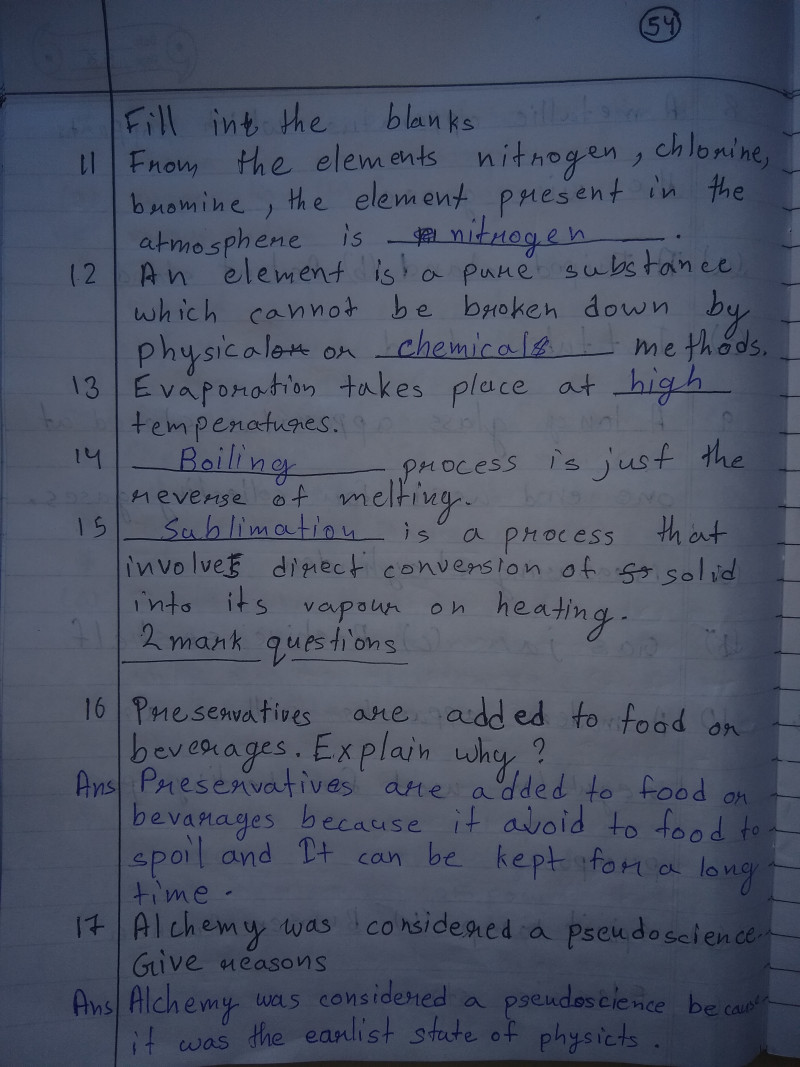 54
Fill int the blanks
11 From the elements nitrogen, chlorine,
bromine, the element present in the
atmosphere is nitrogen.
12 An element is a pure substance
which cannot be broken down by
physical or chemical methods.
13 Evaporation takes place at high
temperatures.
14 Boiling process is just the
reverse of melting.
15 Sublimation is a process that
involves direct conversion of solid
into its vapour on heating.
2 mark questions
16 Preservatives are added to food or
beverages. Explain why?
Ans Preservatives are added to food or
bevarages because it avoid to food to
spoil and It can be kept for a long
time.
17 Alchemy was considered a pseudoscience.
Give reasons
Ans Alchemy was considered a pseudoscience because
it was the earlist state of physicts.